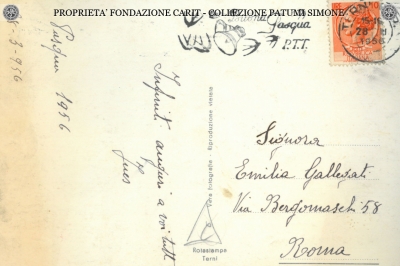 PROPRIETA' FONDAZIONE CARIT - COLLEZIONE PATUMI SIMONE
Pasqua
P.T.T.
TERNI
1956
Pasqua 1956
Infiniti auguri a voi tutti
Ines
Vera Fotografia - Riproduzione vietata
Rotostampa
Terni
Signora
Emilia Gallegati
Via Bergomaschi 58
Roma